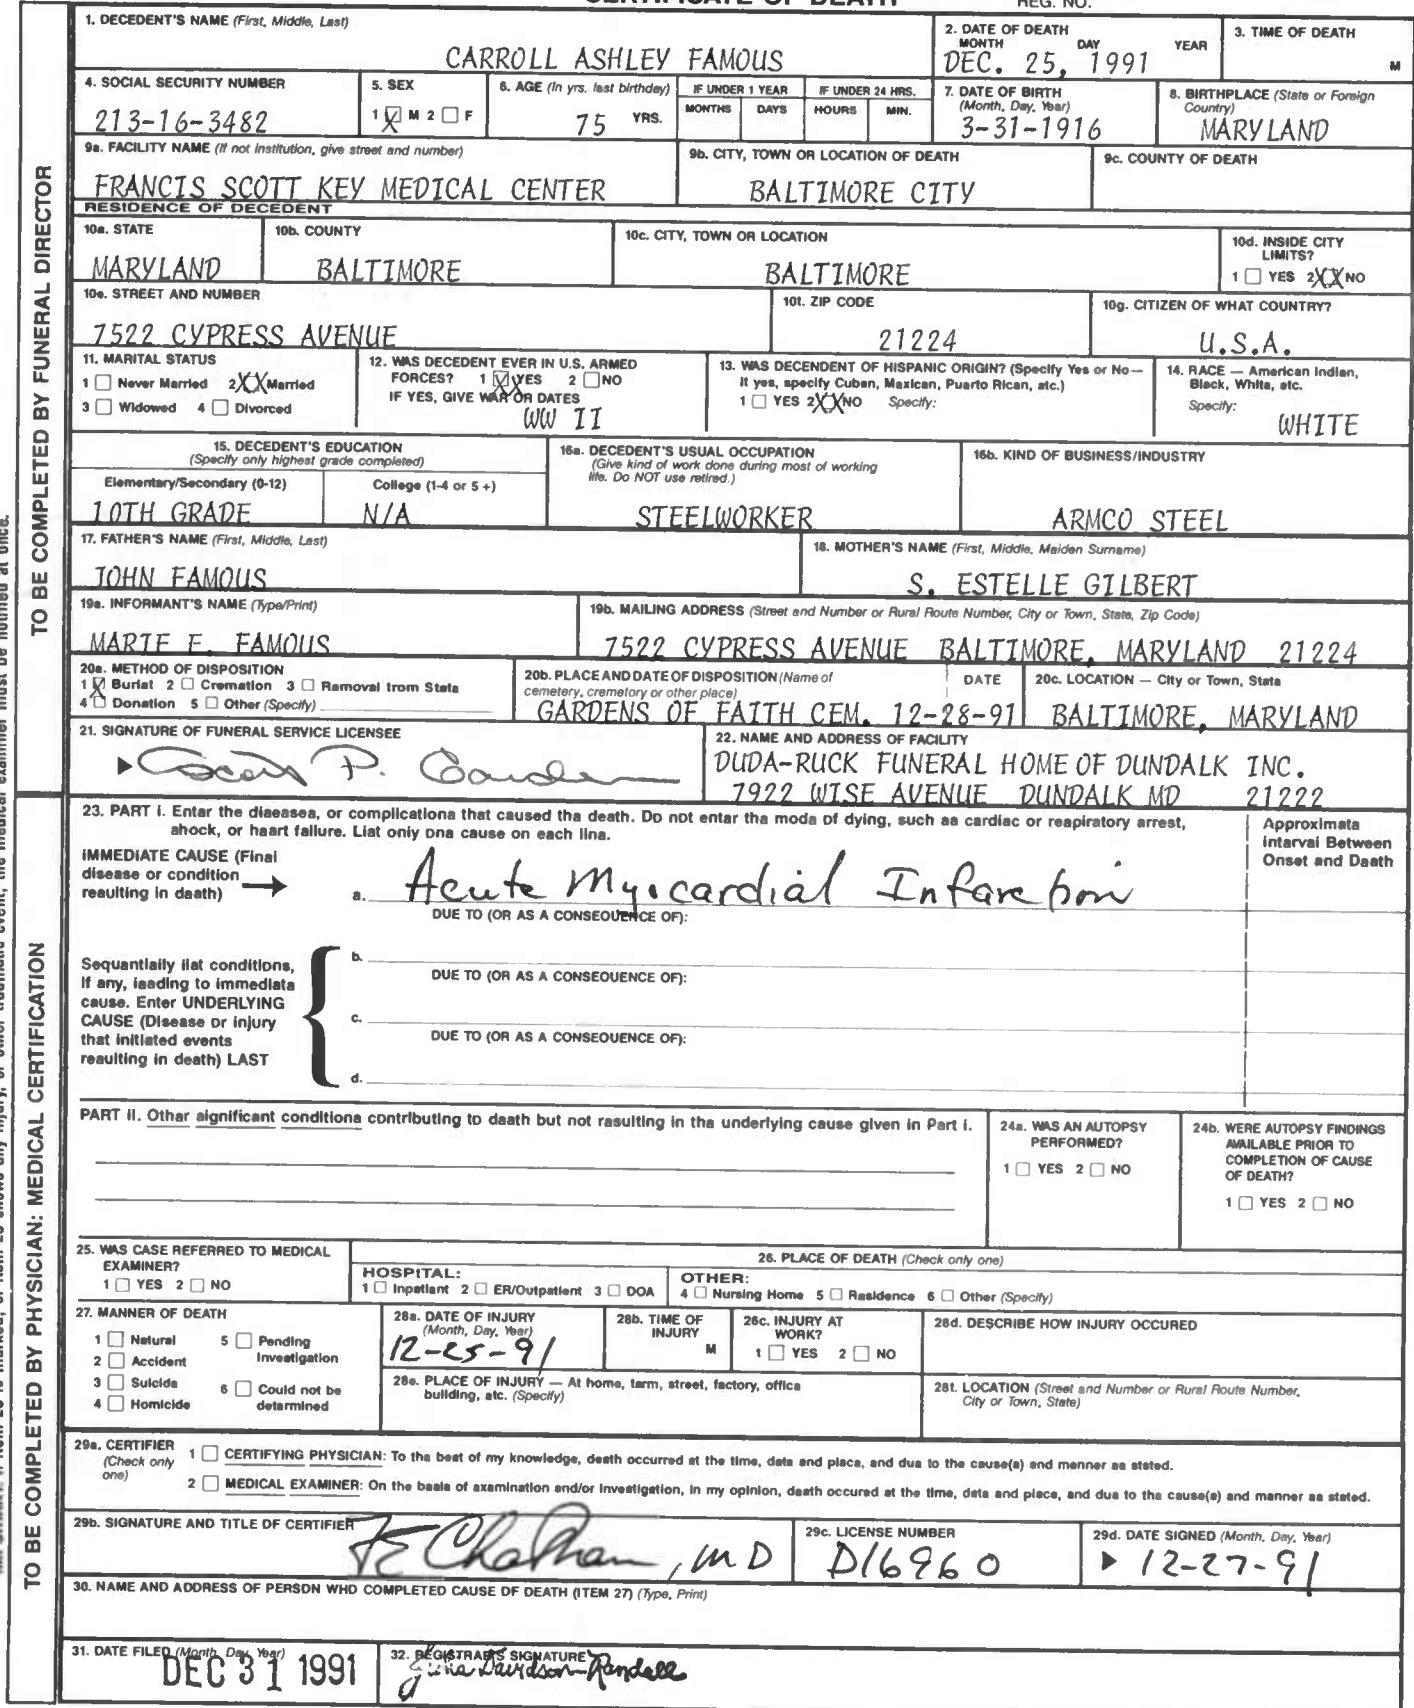 CERTIFICATE OF DEATH
REG. NO.
1. DECEDENT'S NAME (First, Middle, Last)
CARROLL ASHLEY FAMOUS
2. DATE OF DEATH
MONTH DAY YEAR
DEC. 25, 1991
3. TIME OF DEATH
M
4. SOCIAL SECURITY NUMBER
213-16-3482
5. SEX
1 ☒ M 2 ☐ F
6. AGE (In yrs. last birthday)
75 YRS.
IF UNDER 1 YEAR
MONTHS DAYS
IF UNDER 24 HRS.
HOURS MIN.
7. DATE OF BIRTH
(Month, Day, Year)
3-31-1916
8. BIRTHPLACE (State or Foreign
Country)
MARYLAND
9a. FACILITY NAME (If not institution, give street and number)
FRANCIS SCOTT KEY MEDICAL CENTER
9b. CITY, TOWN OR LOCATION OF DEATH
BALTIMORE CITY
9c. COUNTY OF DEATH
RESIDENCE OF DECEDENT
10a. STATE
MARYLAND
10b. COUNTY
BALTIMORE
10c. CITY, TOWN OR LOCATION
BALTIMORE
10d. INSIDE CITY
LIMITS?
1 ☐ YES 2XXNO
10e. STREET AND NUMBER
7522 CYPRESS AVENUE
10f. ZIP CODE
21224
10g. CITIZEN OF WHAT COUNTRY?
U.S.A.
11. MARITAL STATUS
1 ☐ Never Married 2XXMarried
3 ☐ Widowed 4 ☐ Divorced
12. WAS DECEDENT EVER IN U.S. ARMED
FORCES? 1 ☒ YES 2 ☐ NO
IF YES, GIVE WAR OR DATES
WW II
13. WAS DECENDENT OF HISPANIC ORIGIN? (Specify Yes or No—
It yes, specify Cuban, Maxican, Puarto Rican, atc.)
1 ☐ YES 2XXNO Specify:
14. RACE — American Indian,
Black, White, atc.
Specify:
WHITE
15. DECEDENT'S EDUCATION
(Specify only highest grade completed)
Elementary/Secondary (0-12) College (1-4 or 5 +)
10TH GRADE N/A
16a. DECEDENT'S USUAL OCCUPATION
(Give kind of work done during most of working
life. Do NOT use retired.)
STEELWORKER
16b. KIND OF BUSINESS/INDUSTRY
ARMCO STEEL
17. FATHER'S NAME (First, Middle, Last)
JOHN FAMOUS
18. MOTHER'S NAME (First, Middle, Maiden Surname)
S. ESTELLE GILBERT
19a. INFORMANT'S NAME (Type/Print)
MARIE E. FAMOUS
19b. MAILING ADDRESS (Street and Number or Rural Route Number, City or Town, State, Zip Code)
7522 CYPRESS AVENUE BALTIMORE, MARYLAND 21224
20a. METHOD OF DISPOSITION
1 ☒ Burlat 2 ☐ Cremation 3 ☐ Ramoval trom Stata
4 ☐ Donation 5 ☐ Other (Specify)
20b. PLACE AND DATE OF DISPOSITION (Name of
cemetery, crematory or other place)
DATE
GARDENS OF FAITH CEM. 12-28-91
20c. LOCATION — City or Town, Stata
BALTIMORE, MARYLAND
21. SIGNATURE OF FUNERAL SERVICE LICENSEE
22. NAME AND ADDRESS OF FACILITY
DUDA-RUCK FUNERAL HOME OF DUNDALK INC.
7922 WISE AVENUE DUNDALK MD 21222
TO BE COMPLETED BY FUNERAL DIRECTOR
23. PART I. Enter tha diaeasea, or complicationa that caused tha death. Do not entar tha moda of dying, such aa cardiac or reapiratory arrest,
ahock, or haart fallure. Liat only ona cause on each lina.
Approximata
intarval Between
Onset and Daath
IMMEDIATE CAUSE (Finai
disease or condition
resulting in daath) →
a. Acute Myocardial Infarction
DUE TO (OR AS A CONSEQUENCE OF):
Sequantially ilat conditions,
if any, iaading to immediata
cause. Enter UNDERLYING
CAUSE (Disease or injury
that initiated events
reaulting in death) LAST
b.
DUE TO (OR AS A CONSEQUENCE OF):
c.
DUE TO (OR AS A CONSEQUENCE OF):
d.
PART II. Othar aignificant conditiona contributing to daath but not rasulting in tha underlying cause given in Part I.
24a. WAS AN AUTOPSY
PERFORMED?
1 ☐ YES 2 ☐ NO
24b. WERE AUTOPSY FINDINGS
AVAILABLE PRIOR TO
COMPLETION OF CAUSE
OF DEATH?
1 ☐ YES 2 ☐ NO
25. WAS CASE REFERRED TO MEDICAL
EXAMINER?
1 ☐ YES 2 ☐ NO
26. PLACE OF DEATH (Check only one)
HOSPITAL:
1 ☐ Inpatlant 2 ☐ ER/Outpatlent 3 ☐ DOA
OTHER:
4 ☐ Nursing Home 5 ☐ Rasldence 6 ☐ Other (Specify)
27. MANNER OF DEATH
1 ☐ Natural 5 ☐ Pending
Invaatigation
2 ☐ Accident
3 ☐ Sulcida 6 ☐ Could not be
determined
4 ☐ Homicide
28a. DATE OF INJURY
(Month, Day, Year)
12-25-91
28b. TIME OF
INJURY
M
26c. INJURY AT
WORK?
1 ☐ YES 2 ☐ NO
28d. DESCRIBE HOW INJURY OCCURED
28e. PLACE OF INJURY — At home, tarm, street, factory, office
building, atc. (Specify)
28f. LOCATION (Street and Number or Rural Route Number,
City or Town, State)
29a. CERTIFIER
(Check only
one)
1 ☐ CERTIFYING PHYSICIAN: To tha beat of my knowledge, death occurred at the tima, data and placa, and dua to the cause(a) and menner aa stated.
2 ☐ MEDICAL EXAMINER: On the baala of axamination and/or Investigation, in my opinion, daath occured at the time, data and place, and due to the cause(a) and manner aa stated.
29b. SIGNATURE AND TITLE OF CERTIFIER
, MD
29c. LICENSE NUMBER
D16960
29d. DATE SIGNED (Month, Day, Year)
12-27-91
30. NAME AND ADDRESS OF PERSON WHO COMPLETED CAUSE OF DEATH (ITEM 27) (Type, Print)
31. DATE FILED (Month, Day, Year)
DEC 31 1991
32. REGISTRAR'S SIGNATURE
Davidson-Randall
TO BE COMPLETED BY PHYSICIAN: MEDICAL CERTIFICATION